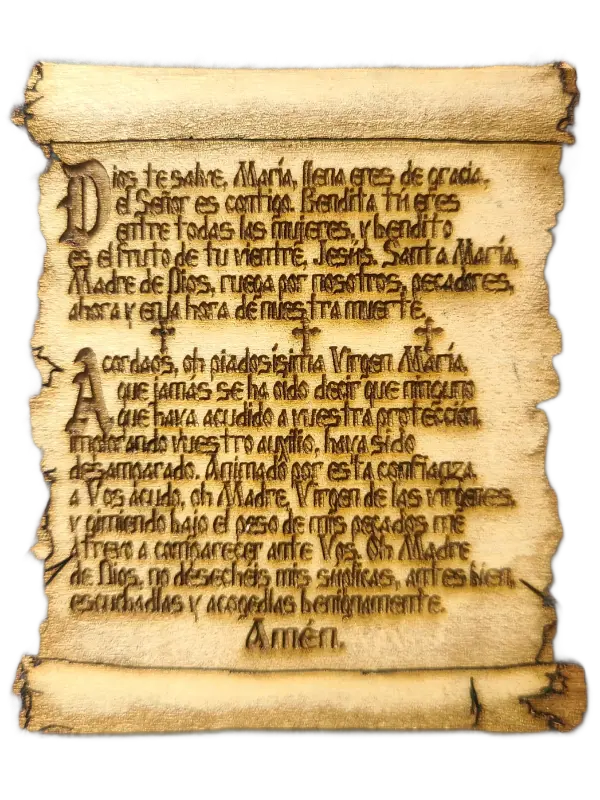 Dios te salve, María, llena eres de gracia,
el Señor es contigo. Bendita tú eres
entre todas las mujeres, y bendito
es el fruto de tu vientre, Jesús. Santa María,
Madre de Dios, ruega por nosotros, pecadores,
ahora y en la hora de nuestra muerte.
Acordaos, oh piadosísima Virgen María,
que jamás se ha oído decir que ninguno
que haya acudido a vuestra protección,
implorando vuestro auxilio, haya sido
desamparado. Animado por esta confianza,
a Vos acudo, oh Madre, Virgen de las vírgenes,
y gimiendo bajo el peso de mis pecados me
atrevo a comparecer ante Vos. Oh Madre
de Dios, no desechéis mis súplicas, antes bien,
escuchadlas y acogedlas benignamente.
Amén.